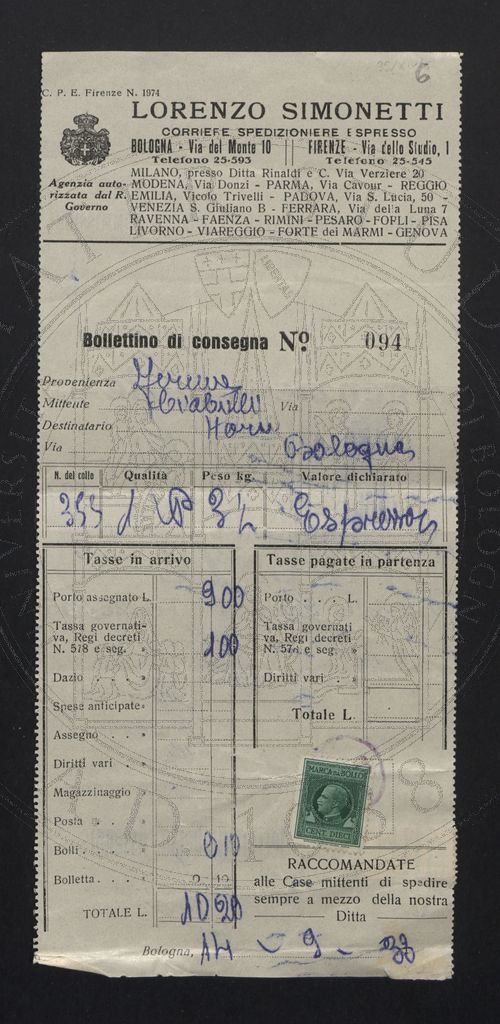 6
C. P. E. Firenze N. 1974
LORENZO SIMONETTI
CORRIERE SPEDIZIONIERE ESPRESSO
BOLOGNA - Via del Monte 10 || FIRENZE - Via dello Studio, 1
Telefono 25-593 Telefono 25-545
Agenzia auto-
rizzata dal R.
Governo
MILANO, presso Ditta Rinaldi e C. Via Verziere 20
MODENA, Via Donzi - PARMA, Via Cavour - REGGIO
EMILIA, Vicolo Trivelli - PADOVA, Via S. Lucia, 50 -
VENEZIA S. Giuliano B - FERRARA, Via della Luna 7
RAVENNA - FAENZA - RIMINI - PESARO - FORLI - PISA
LIVORNO - VIAREGGIO - FORTE dei MARMI - GENOVA
Bollettino di consegna Nº 094
Provenienza
Mittente Via
Destinatario
Via Bologna
N. del collo Qualità Peso kg. Valore dichiarato
355 1 34 Espresso
Tasse in arrivo
Porto assegnato L. 9 00
Tassa governati-
va, Regi decreti
N. 578 e seg. » 1 00
Dazio . . . »
Spese anticipate »
Assegno . . »
Diritti vari . . »
Magazzinaggio »
Posta . . . . »
Bolli . . . . » 0 10
Bolletta . . . » 0 10
TOTALE L. 10 20
Tasse pagate in partenza
Porto . . . . L.
Tassa governati
va, Regi decreti
N. 578 e seg. »
Diritti vari . . »
Totale L.
MARCA DA BOLLO
CENT. DIECI
RACCOMANDATE
alle Case mittenti di spedire
sempre a mezzo della nostra
Ditta
Bologna, 14 - 9 - 38